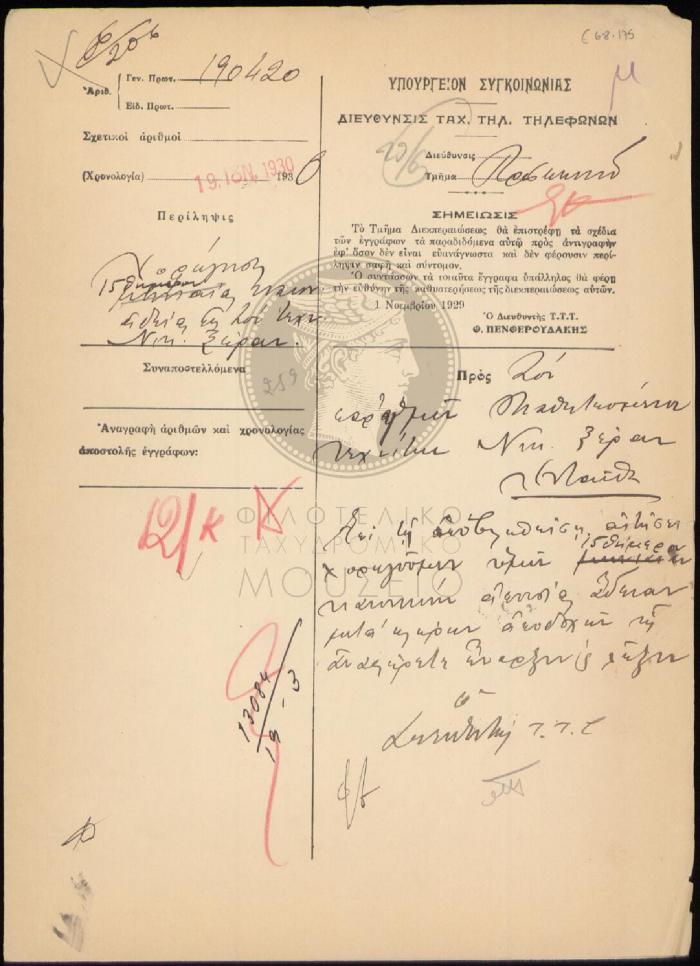 68.175
8/206
Ἀριθ. Γεν. Πρωτ. 190420
Εἰδ. Πρωτ.
Σχετικοὶ ἀριθμοὶ
(Χρονολογία) 19. ΙΟΥΝ. 1930 193 0
Περίληψις
Χορήγησις
15θημέρου
ἀδείας εἰς τὸν τεχν.
Νικ. Ξέραν.
Συναποστελλόμενα
Ἀναγραφὴ ἀριθμῶν καὶ χρονολογίας
ἀποστολῆς ἐγγράφων:
12/κ Κ
13084
19-3
ΥΠΟΥΡΓΕΙΟΝ ΣΥΓΚΟΙΝΩΝΙΑΣ
μ
ΔΙΕΥΘΥΝΣΙΣ ΤΑΧ. ΤΗΛ. ΤΗΛΕΦΩΝΩΝ
20/6
Διεύθυνσις
Τμῆμα Προσωπικοῦ
ΣΗΜΕΙΩΣΙΣ
Τὸ Τμῆμα Διεκπεραιώσεως θὰ ἐπιστρέφῃ τὰ σχέδια
τῶν ἐγγράφων τὰ παραδιδόμενα αὐτῷ πρὸς ἀντιγραφὴν
ἐφ' ὅσον δὲν εἶναι εὐανάγνωστα καὶ δὲν φέρουσιν περί-
ληψιν σαφῆ καὶ σύντομον.
Ὁ συντάσσων τὰ τοιαῦτα ἔγγραφα ὑπάλληλος θὰ φέρῃ
τὴν εὐθύνην τῆς καθυστερήσεως τῆς διεκπεραιώσεως αὐτῶν.
1 Νοεμβρίου 1929
Ὁ Διευθυντὴς Τ.Τ.Τ.
Θ. ΠΕΝΘΕΡΟΥΔΑΚΗΣ
259
Πρὸς Τὸν
Μαθητευόμενον
τεχνίτην Νικ. Ξέραν
Ἐπὶ τῇ ὑποβληθείσῃ αἰτήσει
χορηγοῦμεν ὑμῖν 15θήμερον
κανονικὴν ἀπουσίας ἄδειαν
μετὰ πλήρων ἀποδοχῶν τῆς
ἀναφέρετε ἔναρξιν λῆξιν
Ὁ
Διευθυντὴς Τ.Τ.Τ.
ΦΙΛΟΤΕΛΙΚΟ
ΤΑΧΥΔΡΟΜΙΚΟ
ΜΟΥΣΕΙΟ